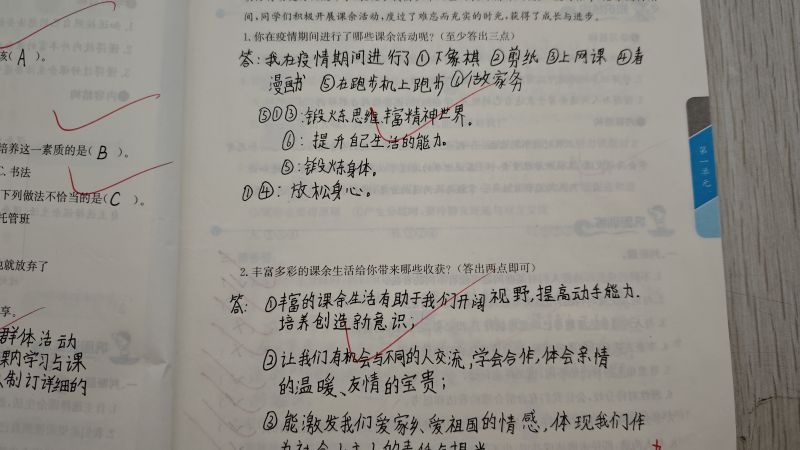 该( A )。
培养这一素质的是( B )。
C. 书法
下列做法不恰当的是( C )。
托管班
也就放弃了
享。
群体活动
课内学习与课
制订详细的
间,同学们积极开展课余活动,度过了难忘而充实的时光,获得了成长与进步。
1.你在疫情期间进行了哪些课余活动呢?(至少答出三点)
答:我在疫情期间进行了①下象棋 ②剪纸 ③上网课 ④看
漫画书 ⑤在跑步机上跑步 ⑥做家务
①③:锻炼思维,丰富精神世界。
⑥:提升自己生活的能力。
⑤:锻炼身体。
①④:放松身心。
2.丰富多彩的课余生活给你带来哪些收获?(答出两点即可)
答:①丰富的课余生活有助于我们开阔视野,提高动手能力.
培养创造新意识;
②让我们有机会与不同的人交流,学会合作,体会亲情
的温暖、友情的宝贵;
③能激发我们爱家乡、爱祖国的情感,体现我们作
第一单元